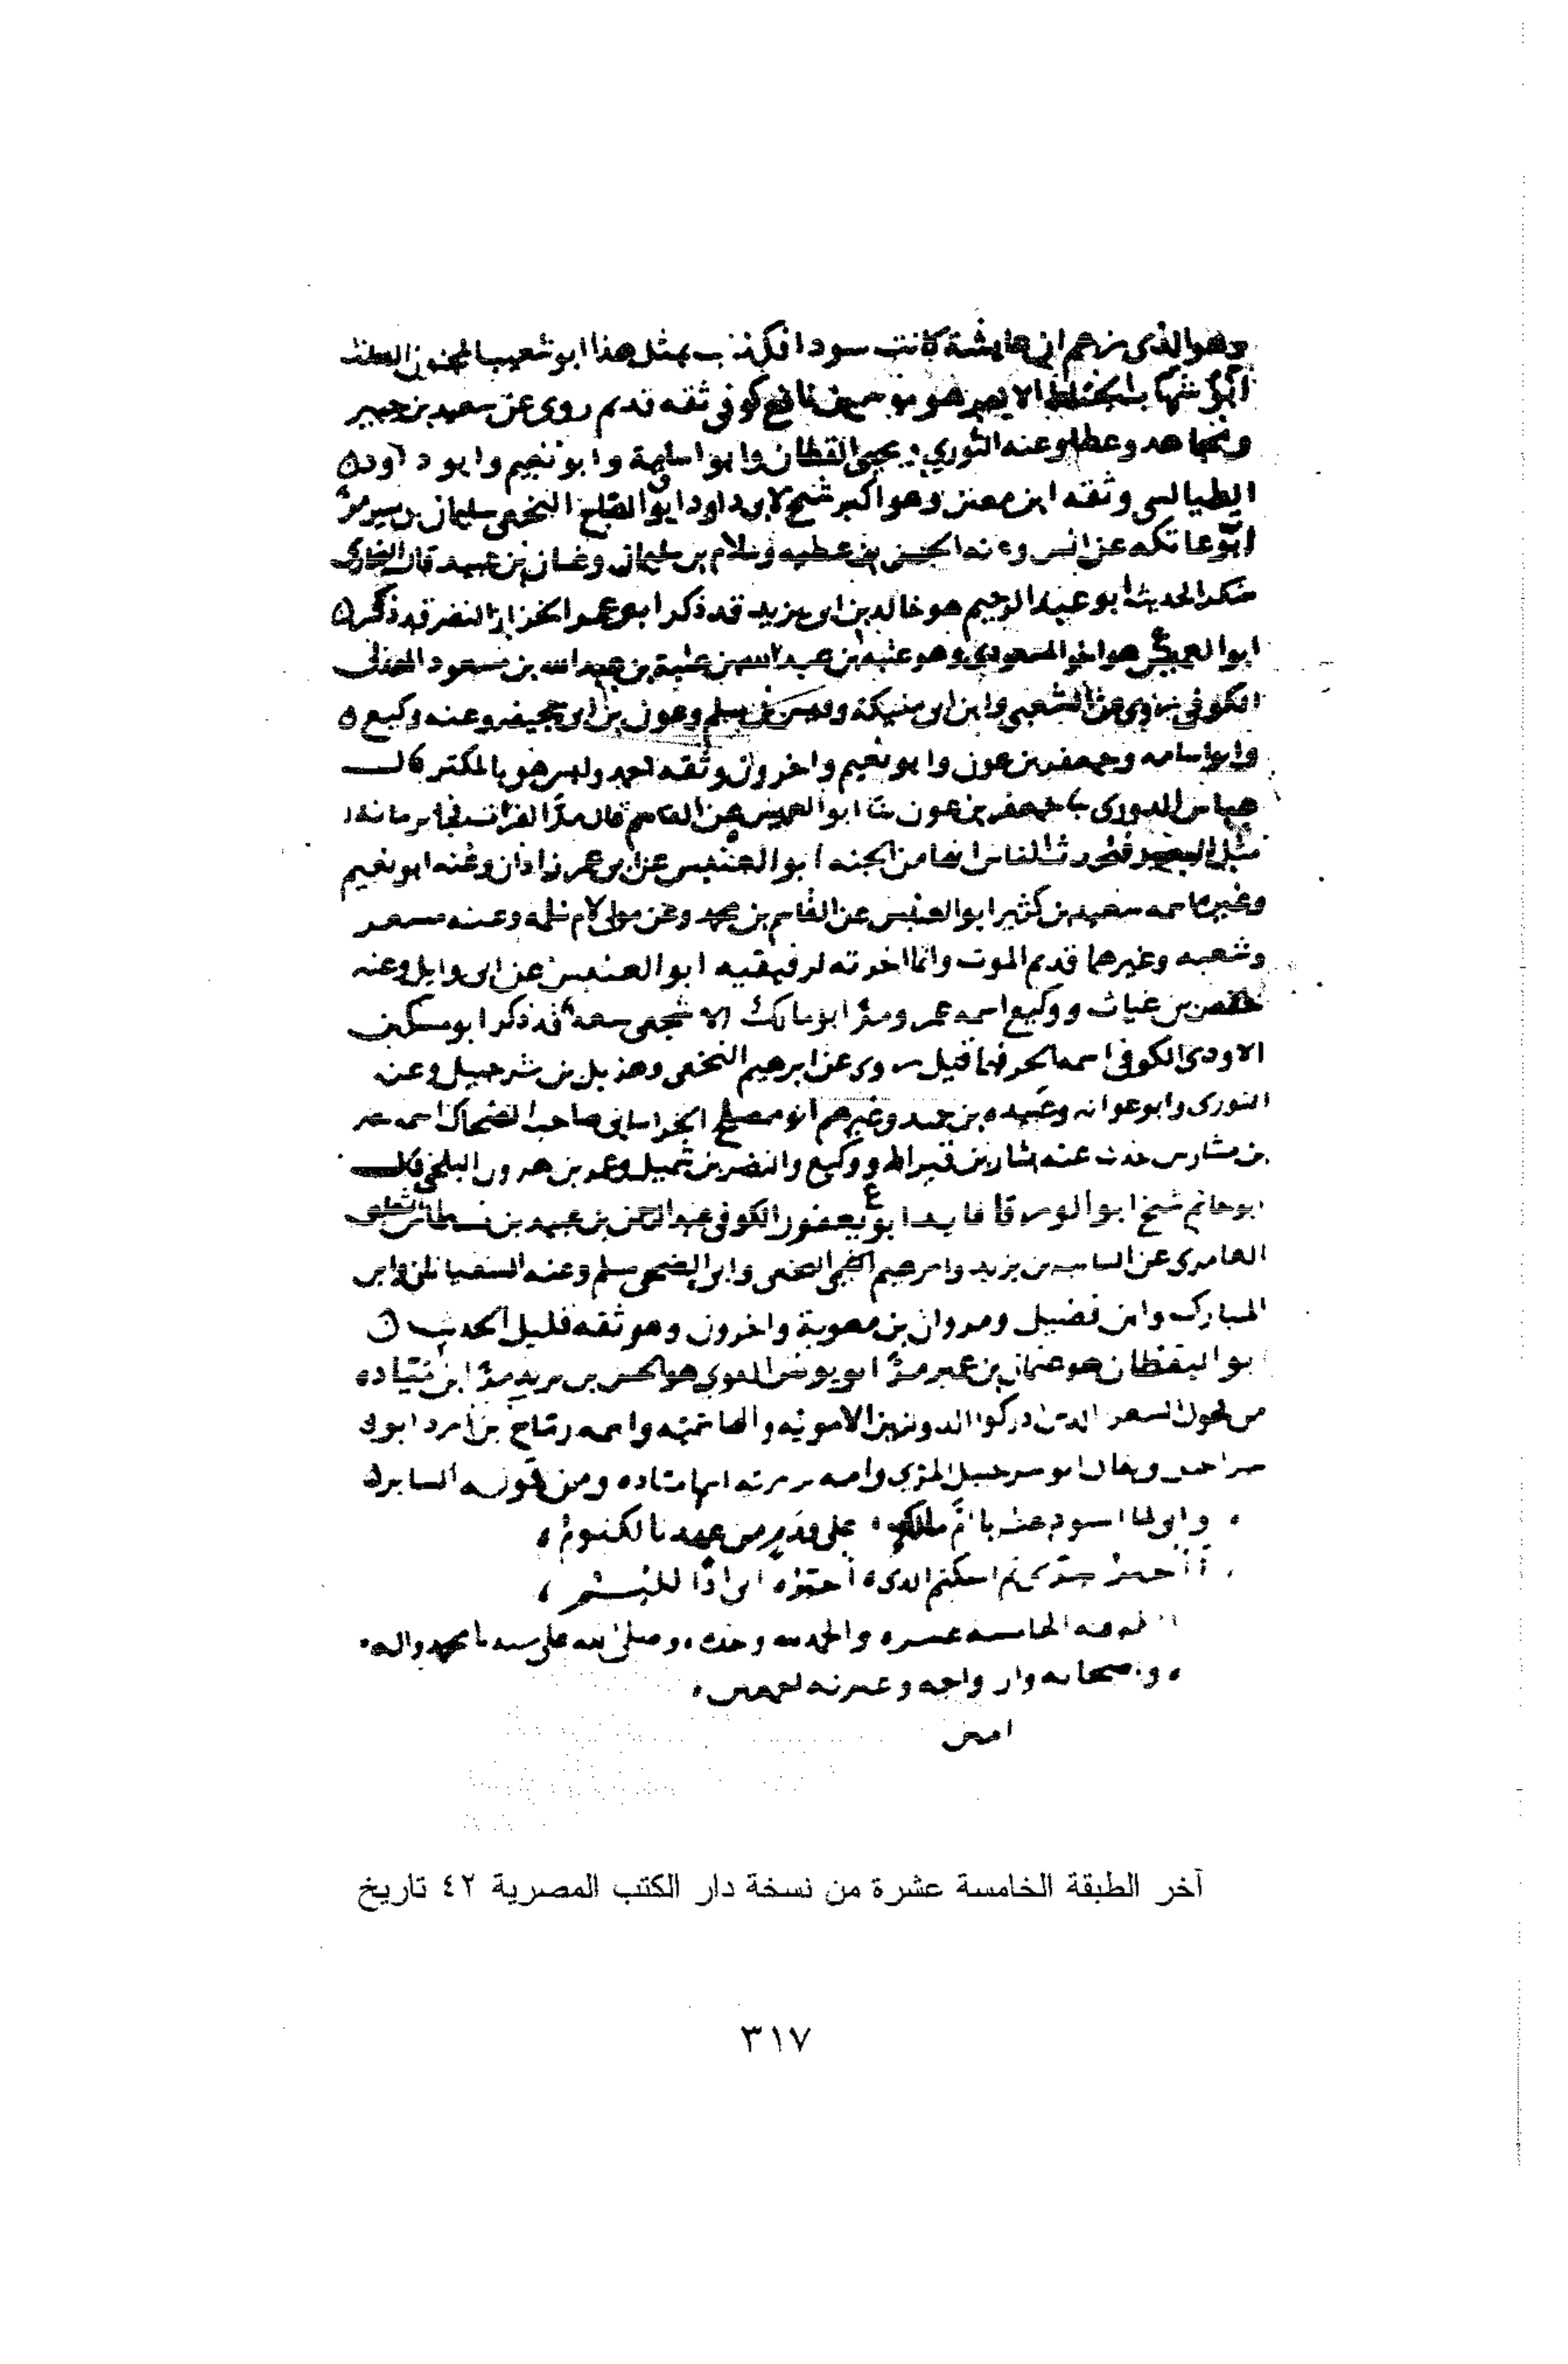 وهو الذي زعم ان عايشة كانت سودا فكذب بمثل هذا ابو شعيب المجنون
ابو شهاب الحناط الاكبر هو موسى بن نافع كوفي ثقه قديم روى عن سعيد بن جبير
ومجاهد وعطا وعنه الثوري ويحيى القطان وابو اسامة وابو نعيم وابو داود
الطيالسي وثقه ابن معين وهو اكبر شيخ لابي داود ابو النخعي سليمان بن مر
ابو عاتكه عن انس وعنه الحسن بن عطيه وسلام بن سليمان وغسان بن عبيد قال البخاري
منكر الحديث ابو عبد الرحيم هو خالد بن ابي يزيد قد ذكر ابو عمر الخزاز النضر قد ذكر
ابو العميس هو اخو المسعودي وهو عتبة بن عبد الله بن عتبة بن عبد الله بن مسعود الهذلي
الكوفي روى عن الشعبي وابن ابي مليكة وقيس بن مسلم وعون بن ابي جحيفه وعنه وكيع
وابو اسامه وجعفر بن عون وابو نعيم واخرون وثقه احمد وليس هو بالمكثر قال
عباس الدوري جعفر بن عون ابو العميس عن القاسم قال مد الفرات فجا برمانة
مثل البعير الناس انها من الجنه ابو العنبس عن ابي عمر زاذان وعنه ابو نعيم
وغيره اسمه سعيد بن كثير ابو العنبس عن القاسم بن محمد وعن مولى لام سلمه وعنه مسعر
وشعبه وغيرهما قديم الموت وانما اخرته لرفيقيه ابو العنبس عن ابي وايل وعنه
حفص بن غياث ووكيع اسمه عمرو مر ابو مالك الاشجعي سعد قد ذكر ابو مسكين
الاودي الكوفي اسمه الحر فيما قيل روى عن ابرهيم النخعي وهذيل بن شرحبيل وعنه
الثوري وابو عوانه وعبيده بن حميد وغيرهم ابو مصلح الخراساني صاحب الضحاك اسمه نصر
بن مشارس حدث عنه بشار بن قيراط ووكيع والنضر بن شميل وعمر بن هرون البلخي قال
ابو حاتم شيخ ابو الورقا فايد ابو يعفور الكوفي عبد الرحمن بن عبيد بن نسطاس الثعلبي
العامري عن السايب بن يزيد وابرهيم النخعي وابي الضحى مسلم وعنه السفيانان وابن
المبارك وابن فضيل ومروان بن معوية واخرون وهو ثقه قليل الحديث
ابو اليقظان هو عثمان بن عمير مر ابو يونس القوي هو الحسن بن يزيد مر ابن ميادة
من فحول الشعر الذين ادركوا الدولتين الاموية والهاشمية واسمه رماح بن ابرد ابو
شراحيل ويقال ابو شرحبيل المري وامه بربريه اسمها مياده ومن قوله الساير
واني لما استودعت يا ام مالك على قدم من عهدنا لكتوم

اخر الطبقة الخامسة عشره والحمد لله وحده وصلى الله على سيدنا محمد واله
وصحابه وازواجه وعترته اجمعين
امين
آخر الطبقة الخامسة عشرة من نسخة دار الكتب المصرية ٤٢ تاريخ
٣١٧